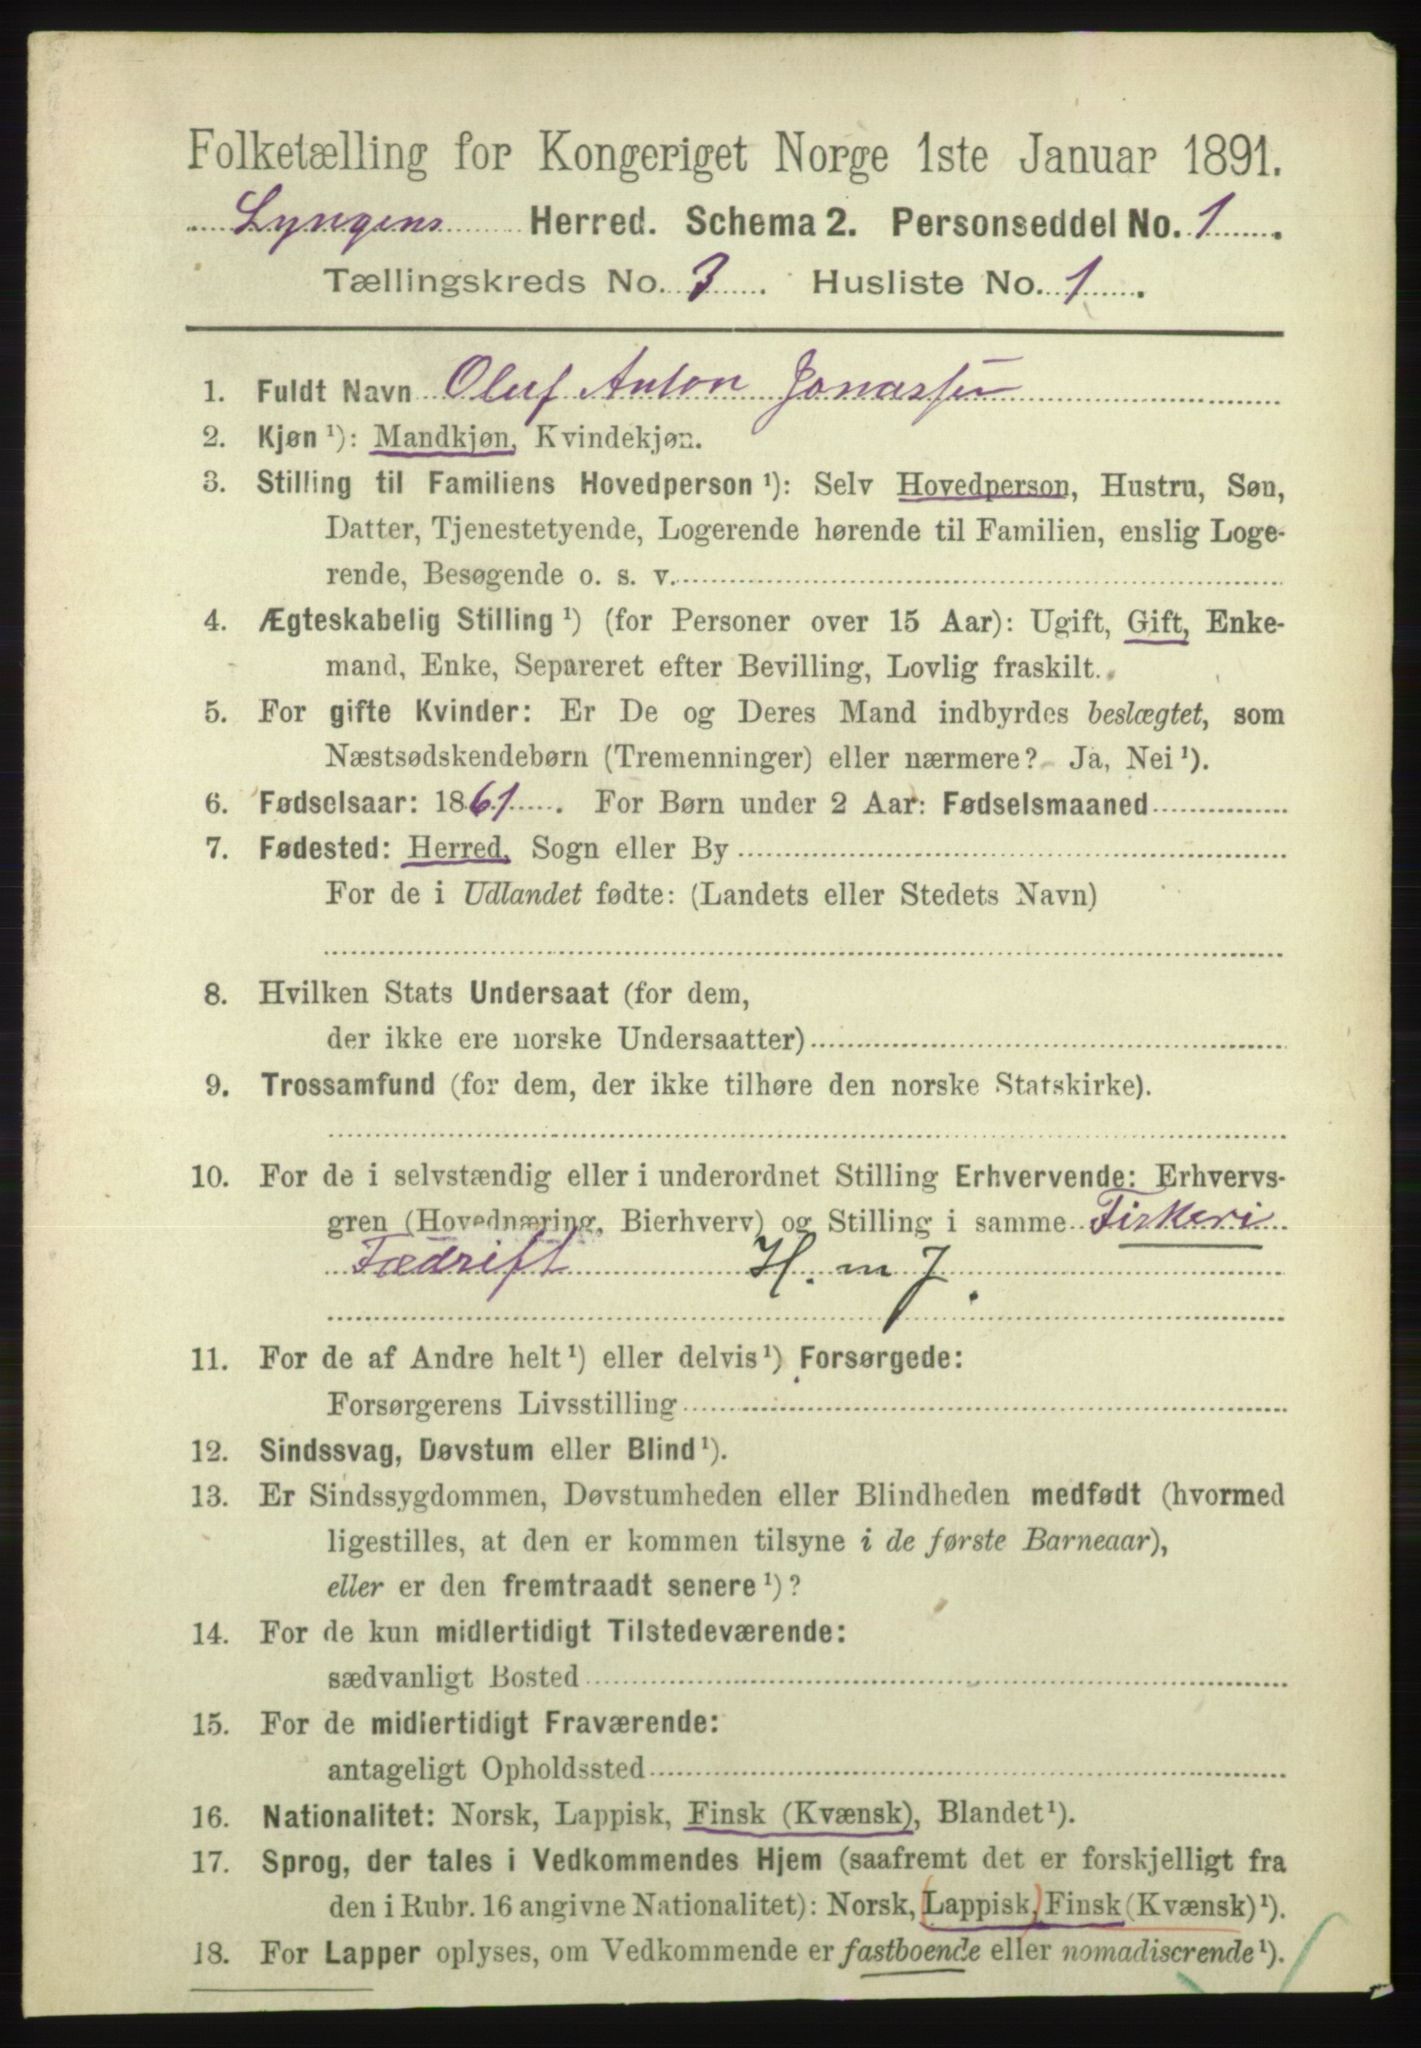 Folketælling for Kongeriget Norge 1ste Januar 1891.
Lyngens Herred. Schema 2. Personseddel No. 1.
Tællingskreds No. 3. Husliste No. 1.
1. Fuldt Navn Oluf Anton Jonassen
2. Kjøn ¹): Mandkjøn, Kvindekjøn.
3. Stilling til Familiens Hovedperson ¹): Selv Hovedperson, Hustru, Søn,
Datter, Tjenestetyende, Logerende hørende til Familien, enslig Loge-
rende, Besøgende o. s. v.
4. Ægteskabelig Stilling ¹) (for Personer over 15 Aar): Ugift, Gift, Enke-
mand, Enke, Separeret efter Bevilling, Lovlig fraskilt.
5. For gifte Kvinder: Er De og Deres Mand indbyrdes beslægtet, som
Næstsødskendebørn (Tremenninger) eller nærmere? Ja, Nei ¹).
6. Fødselsaar: 1861. For Børn under 2 Aar: Fødselsmaaned
7. Fødested: Herred, Sogn eller By
For de i Udlandet fødte: (Landets eller Stedets Navn)
8. Hvilken Stats Undersaat (for dem,
der ikke ere norske Undersaatter)
9. Trossamfund (for dem, der ikke tilhøre den norske Statskirke).
10. For de i selvstændig eller i underordnet Stilling Erhvervende: Erhvervs-
gren (Hovednæring, Bierhverv) og Stilling i samme Fiskeri
Fædrift H. m J.
11. For de af Andre helt ¹) eller delvis ¹) Forsørgede:
Forsørgerens Livsstilling
12. Sindssvag, Døvstum eller Blind ¹).
13. Er Sindssygdommen, Døvstumheden eller Blindheden medfødt (hvormed
ligestilles, at den er kommen tilsyne i de første Barneaar),
eller er den fremtraadt senere ¹)?
14. For de kun midlertidigt Tilstedeværende:
sædvanligt Bosted
15. For de midlertidigt Fraværende:
antageligt Opholdssted
16. Nationalitet: Norsk, Lappisk, Finsk (Kvænsk), Blandet ¹).
17. Sprog, der tales i Vedkommendes Hjem (saafremt det er forskjelligt fra
den i Rubr. 16 angivne Nationalitet): Norsk, Lappisk, Finsk (Kvænsk) ¹).
18. For Lapper oplyses, om Vedkommende er fastboende eller nomadiserende ¹).